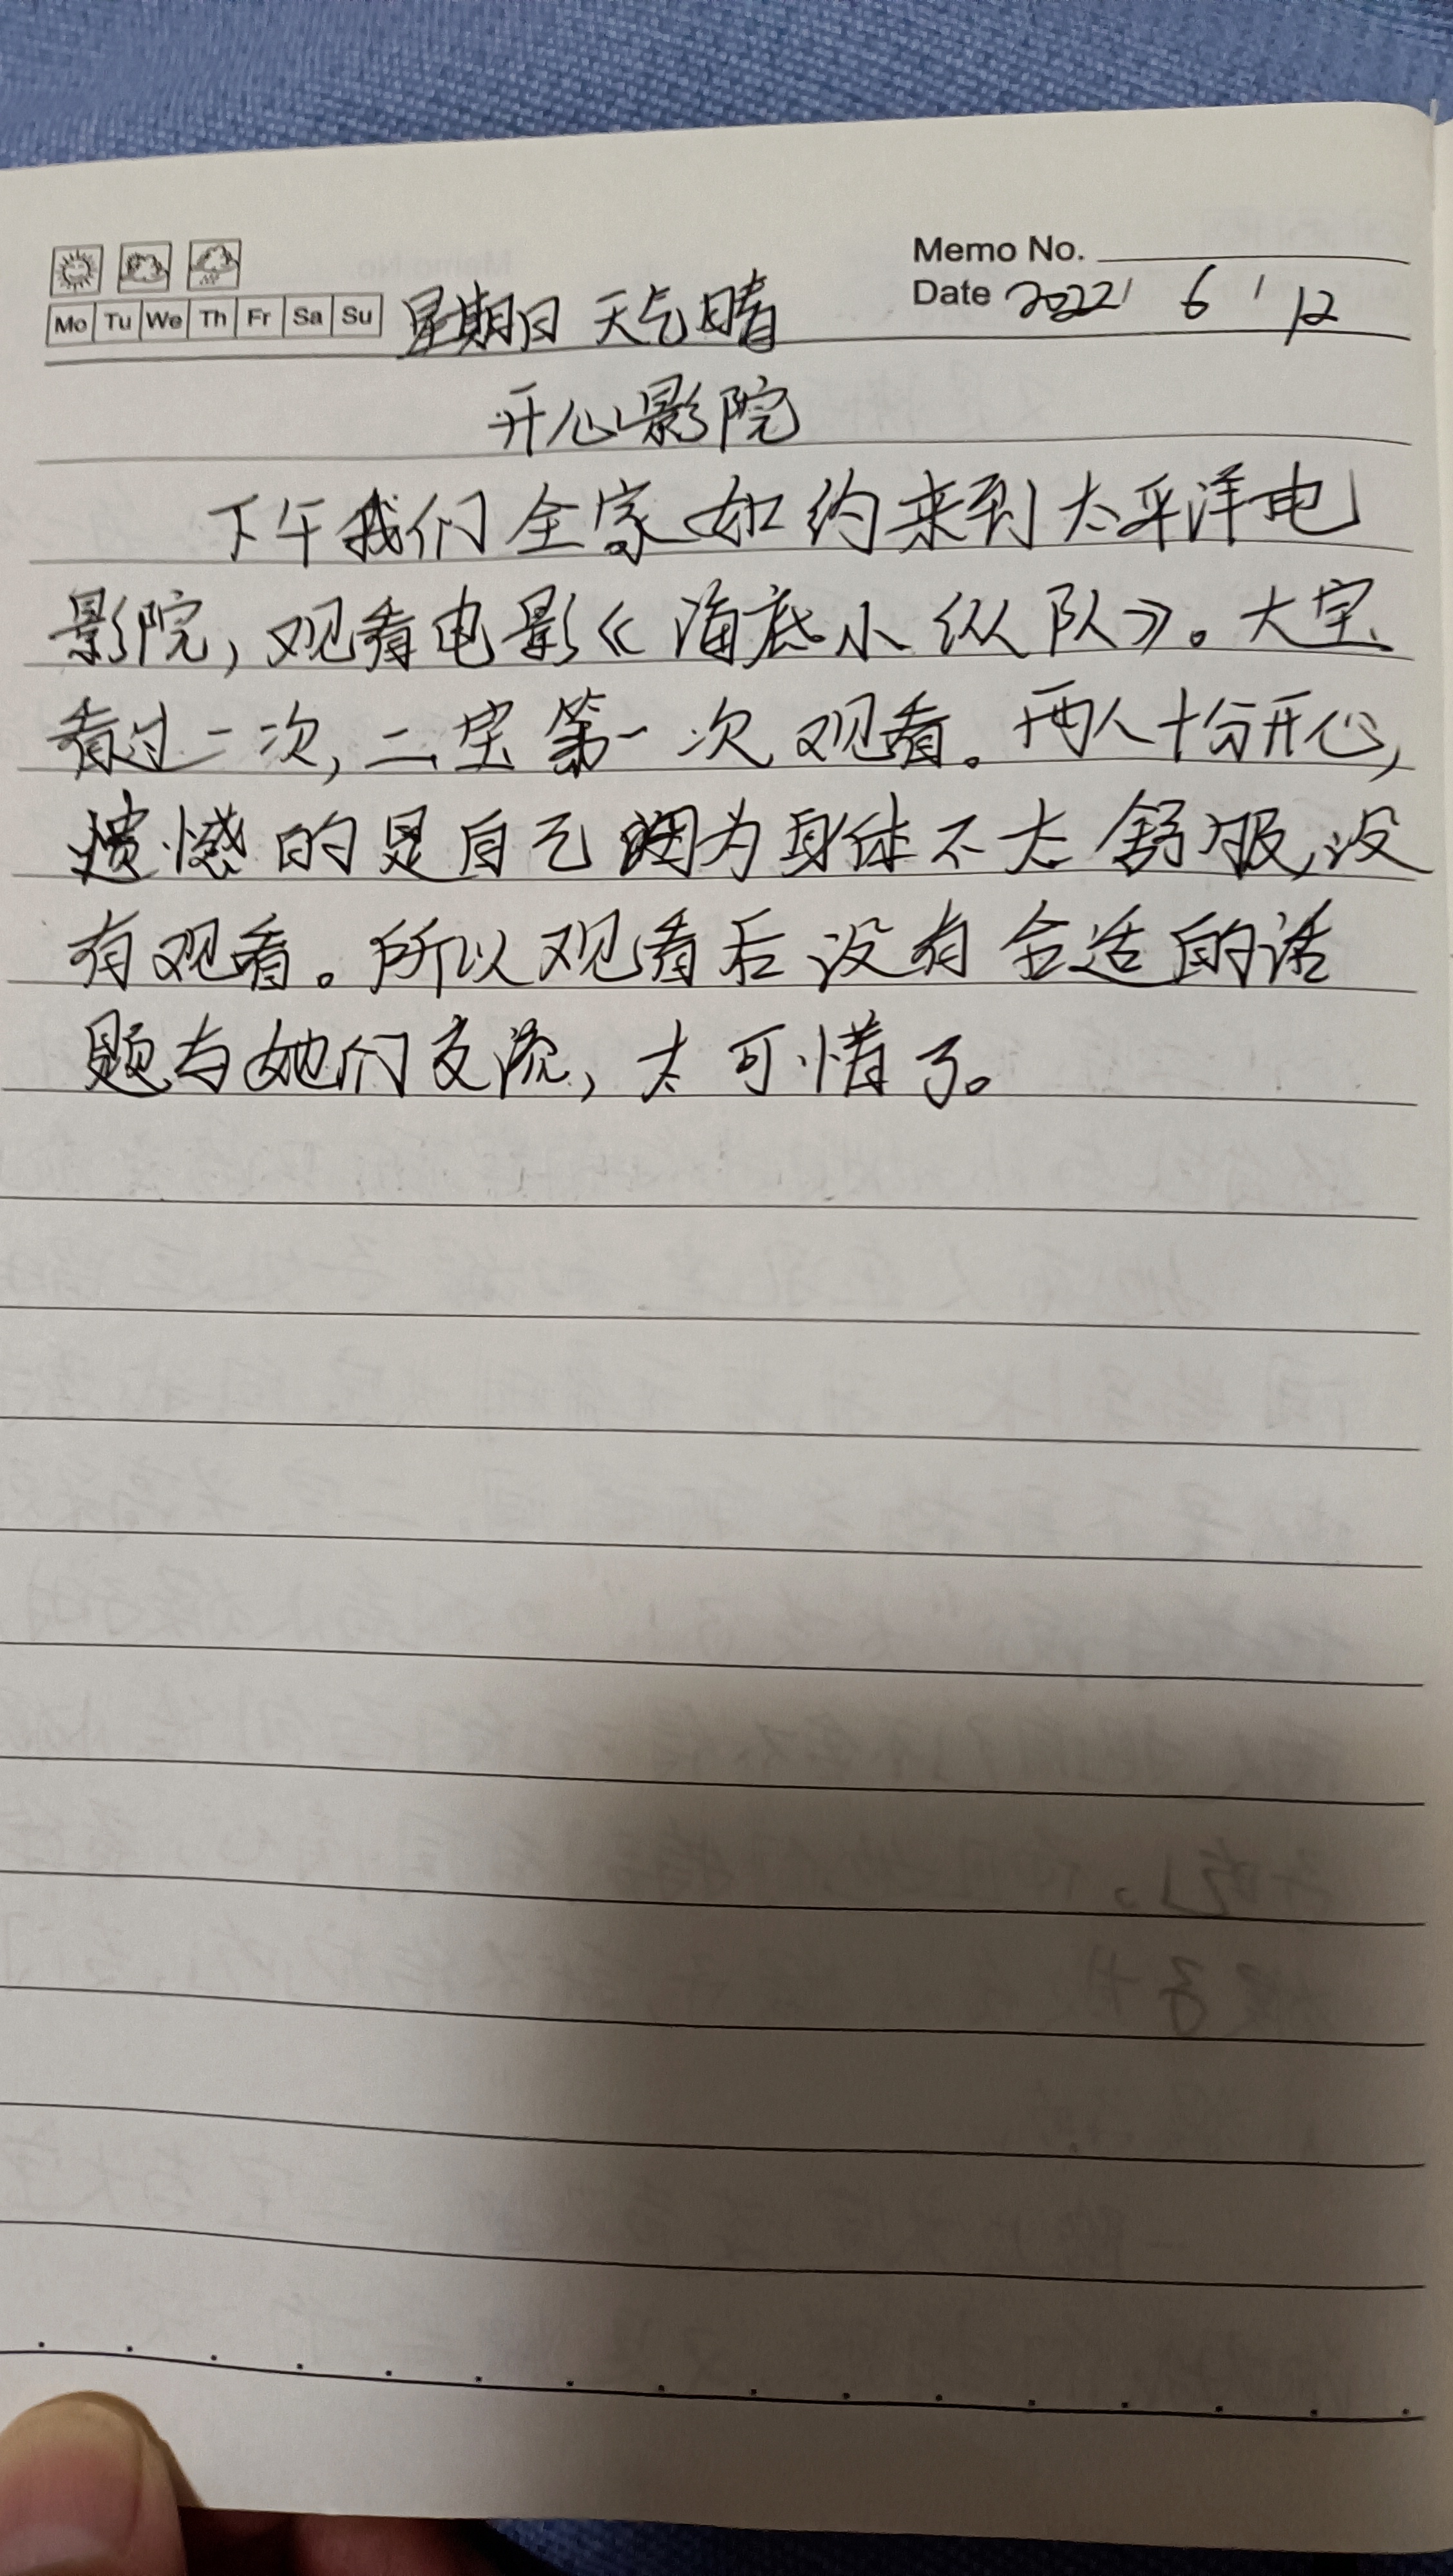 Memo No.
Mo Tu We Th Fr Sa Su 星期日 天气晴 Date 2022 / 6 / 12
开心影院
下午我们全家如约来到太平洋电
影院,观看电影《海底小纵队》。大宝
看过一次,二宝第一次观看。两人十分开心,
遗憾的是自己因为身体不太舒服,没
有观看。所以观看后没有合适的话
题与她们交流,太可惜了。